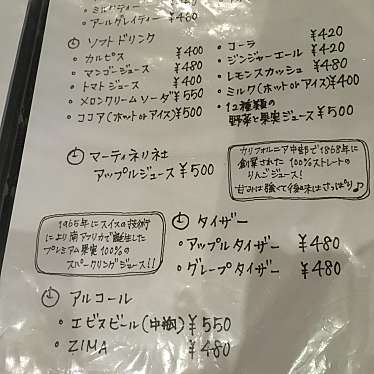 ・ミルクティー
・アールグレイティー ¥480
ソフトドリンク
・カルピス ¥400
・マンゴージュース ¥480
・トマトジュース ¥400
・メロンクリームソーダ ¥550
・ココア(ホットorアイス) ¥500
・コーラ ¥420
・ジンジャーエール ¥420
・レモンスカッシュ ¥480
・ミルク(ホットorアイス) ¥400
・12種類の
野菜と果実ジュース ¥500
マーティネリ社
アップルジュース ¥500
カリフォルニア中部で1868年に
創業された100%ストレートの
りんごジュース!
甘みは強くて後味はさっぱり♪
1965年にスイスの技術
により南アフリカで誕生した
プレミアム果実100%の
スパークリングジュース!!
タイザー
・アップルタイザー ¥480
・グレープタイザー ¥480
アルコール
・エビスビール(中瓶) ¥550
・ZIMA ¥480